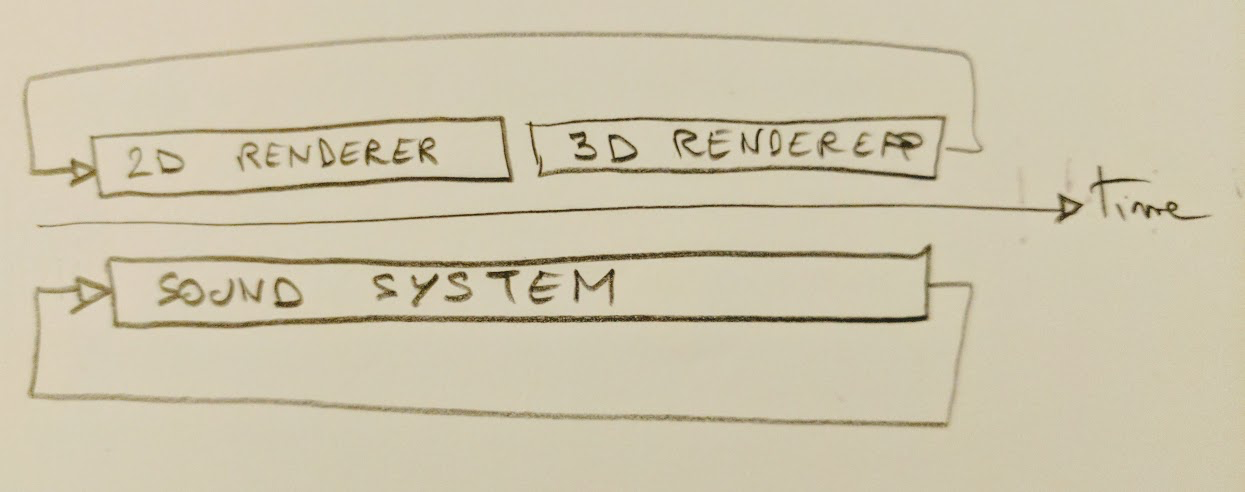 2D RENDERER
3D RENDERER
time
SOUND SYSTEM